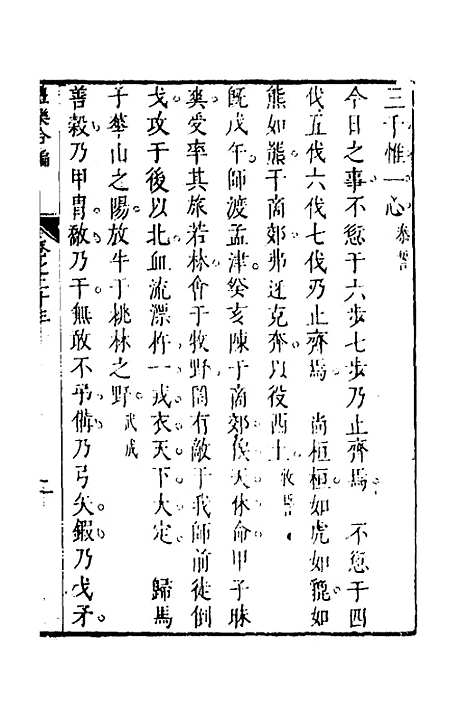 三千惟一心泰誓
今日之事不愆于六步七步乃止齊焉　不愆于四
伐五伐六伐七伐乃止齊焉　尚桓桓如虎如貔如
熊如羆于商郊弗迓克奔以役西土牧誓
既戊午師渡孟津癸亥陳于商郊俟天休命甲子昧
爽受率其旅若林會于牧野罔有敵于我師前徒倒
戈攻于後以北血流漂杵一戎衣天下大定　歸馬
于華山之陽放牛于桃林之野武成
善敹乃甲冑敿乃干無敢不弔備乃弓矢鍛乃戈矛
合編